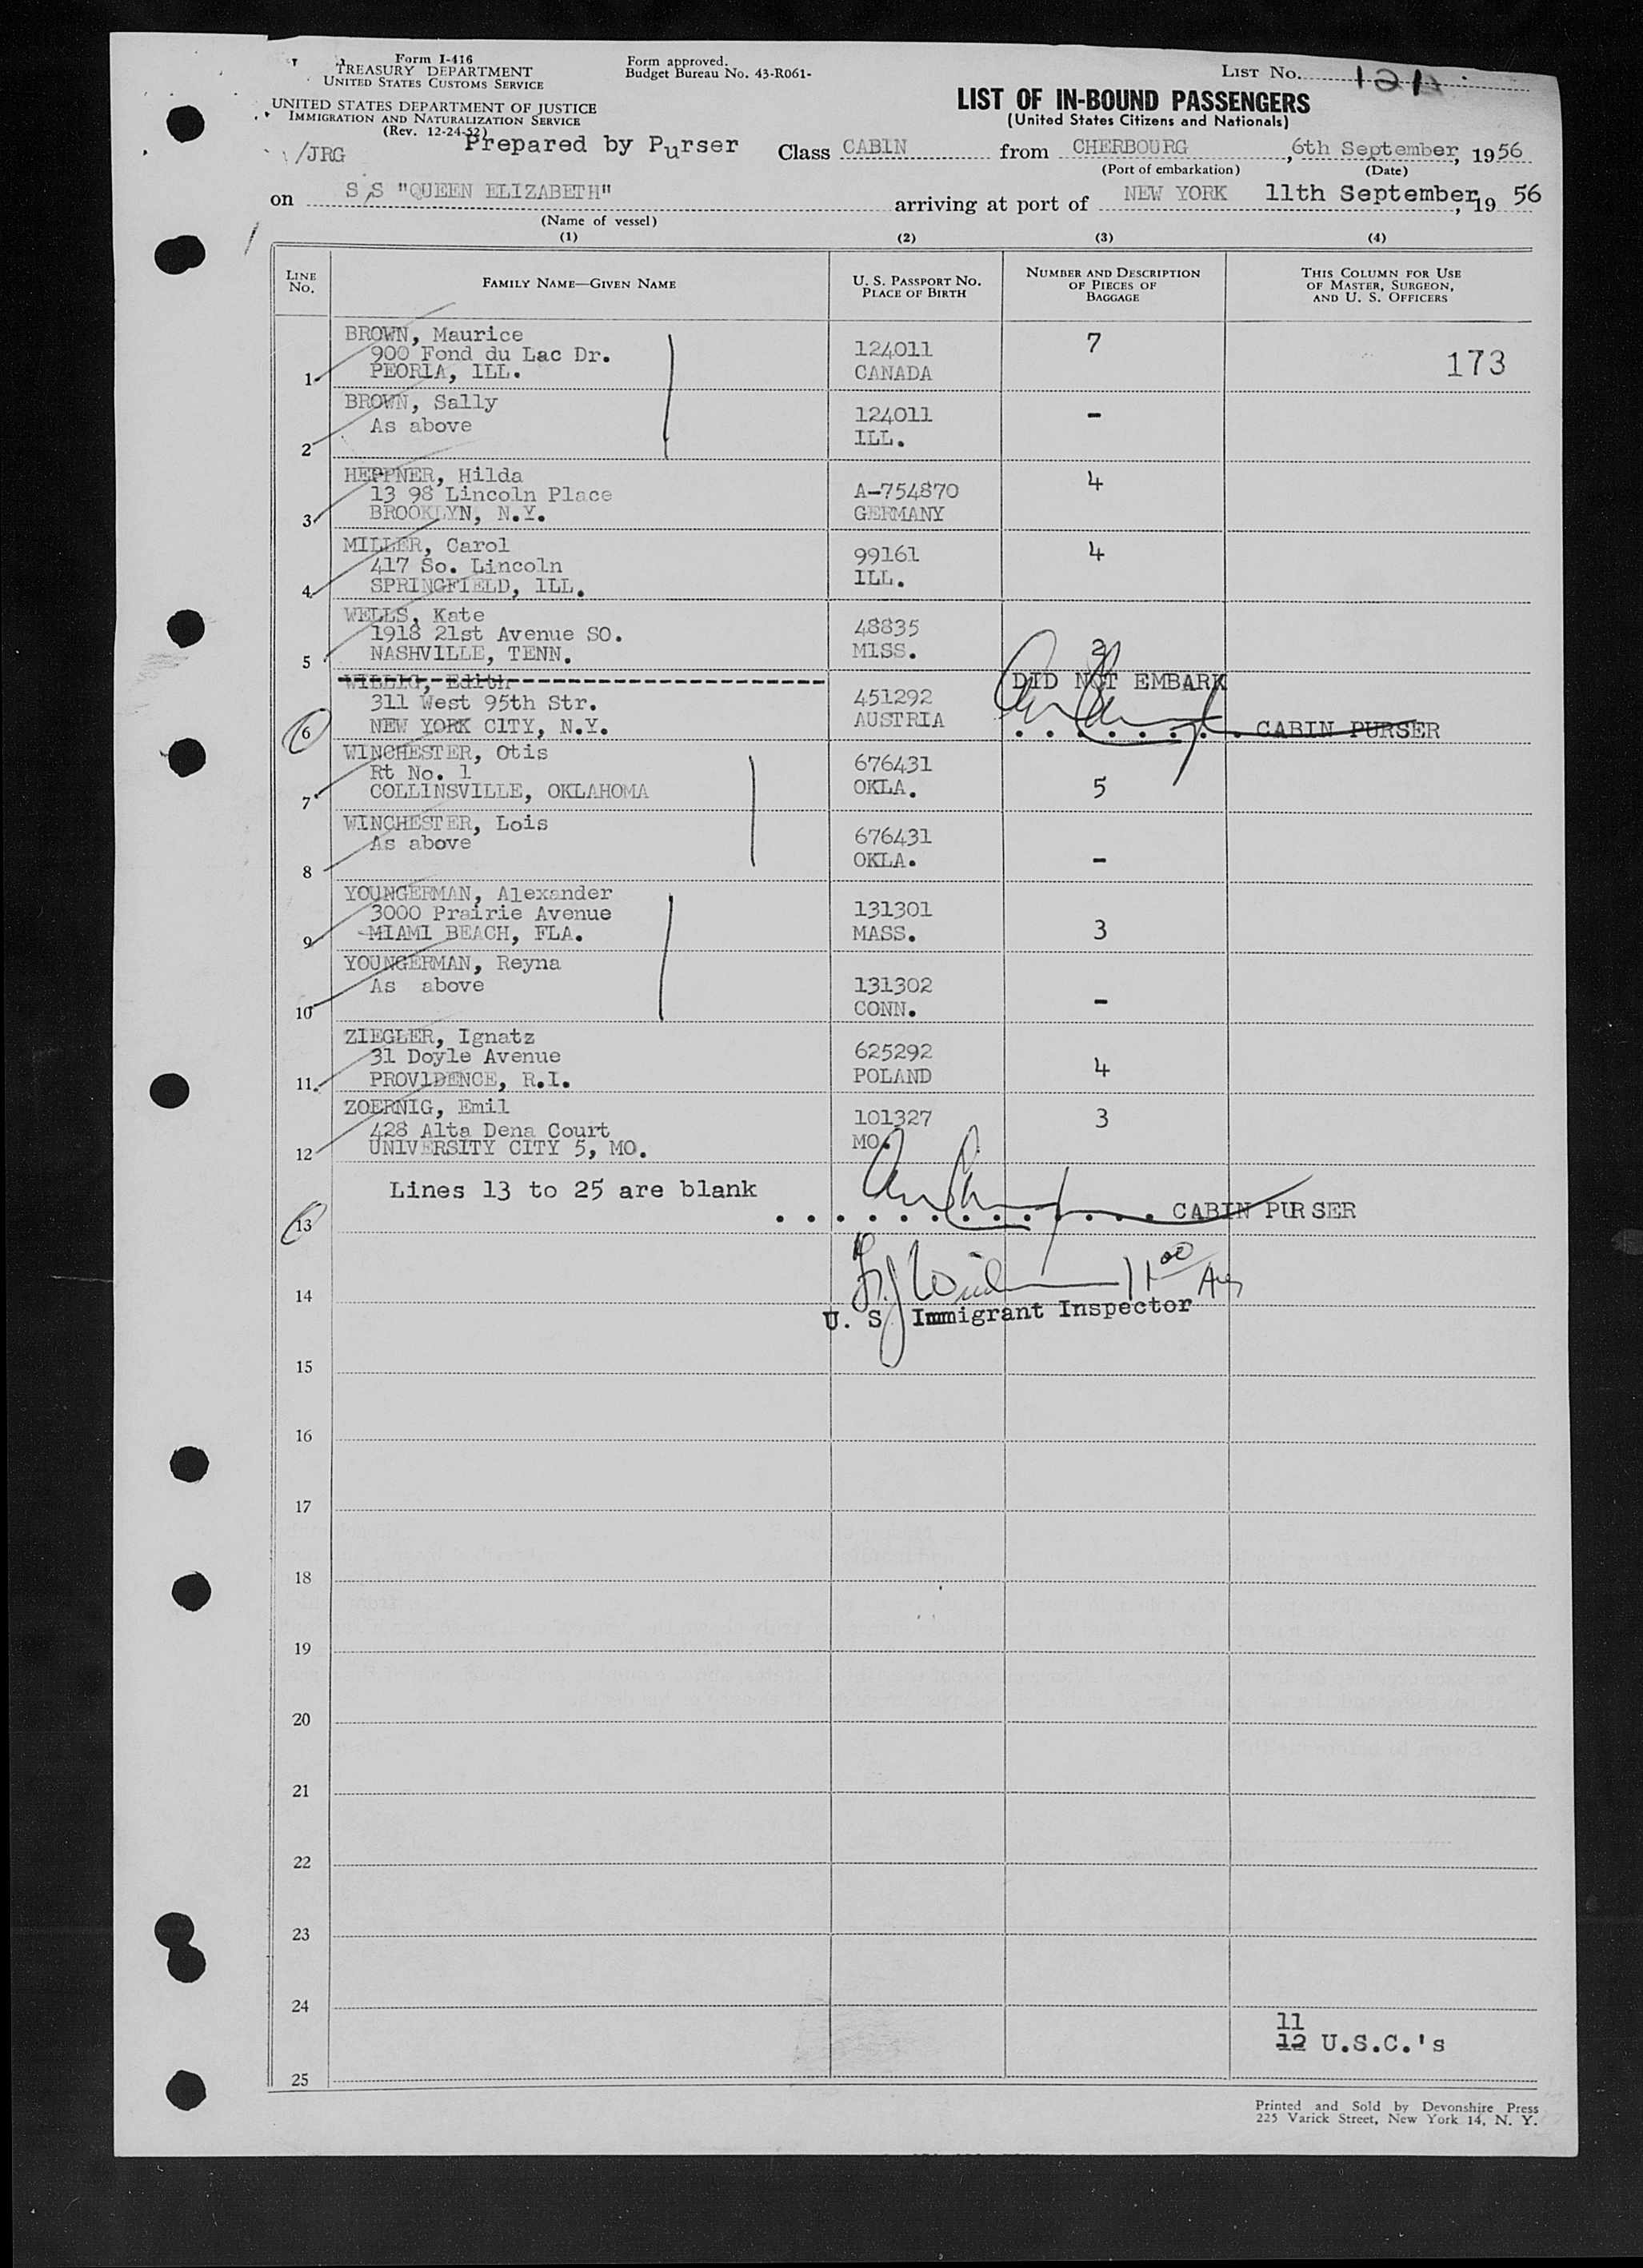 Form I-416
TREASURY DEPARTMENT
UNITED STATES CUSTOMS SERVICE
Form approved.
Budget Bureau No. 43-R061-
LIST No. 121
UNITED STATES DEPARTMENT OF JUSTICE
IMMIGRATION AND NATURALIZATION SERVICE
(Rev. 12-24-52)
LIST OF IN-BOUND PASSENGERS
(United States Citizens and Nationals)
/JRG Prepared by Purser Class CABIN from CHERBOURG, 6th September, 1956
(Port of embarkation) (Date)
on S S "QUEEN ELIZABETH" arriving at port of NEW YORK 11th September, 19 56
(Name of vessel)
(1) (2) (3) (4)
LINE No. FAMILY NAME—GIVEN NAME U. S. PASSPORT No. PLACE OF BIRTH NUMBER AND DESCRIPTION OF PIECES OF BAGGAGE THIS COLUMN FOR USE OF MASTER, SURGEON, AND U. S. OFFICERS
BROWN, Maurice
900 Fond du Lac Dr. 124011 7
1 PEORIA, ILL. CANADA 173
BROWN, Sally
As above 124011 -
2 ILL.
HEPPNER, Hilda
13 98 Lincoln Place A-754870 4
3 BROOKLYN, N.Y. GERMANY
MILLER, Carol
417 So. Lincoln 99161 4
4 SPRINGFIELD, ILL. ILL.
WELLS, Kate
1918 21st Avenue SO. 48835 2
5 NASHVILLE, TENN. MISS.
WILLIG, Edith DID NOT EMBARK
311 West 95th Str. 451292
6 NEW YORK CITY, N.Y. AUSTRIA . . . . . . . . CABIN PURSER
WINCHESTER, Otis
Rt No. 1 676431
7 COLLINSVILLE, OKLAHOMA OKLA. 5
WINCHESTER, Lois
As above 676431
8 OKLA. -
YOUNGERMAN, Alexander
3000 Prairie Avenue 131301
9 MIAMI BEACH, FLA. MASS. 3
YOUNGERMAN, Reyna
As above 131302
10 CONN. -
ZIEGLER, Ignatz
31 Doyle Avenue 625292
11 PROVIDENCE, R.I. POLAND 4
ZOERNIG, Emil
428 Alta Dena Court 101327 3
12 UNIVERSITY CITY 5, MO. MO.
Lines 13 to 25 are blank
13 . . . . . . . . . . . . . CABIN PURSER
11 00 AM
14
U. S. Immigrant Inspector
15
16
17
18
19
20
21
22
23
24
11
12 U.S.C.'s
25
Printed and Sold by Devonshire Press
225 Varick Street, New York 14, N. Y.